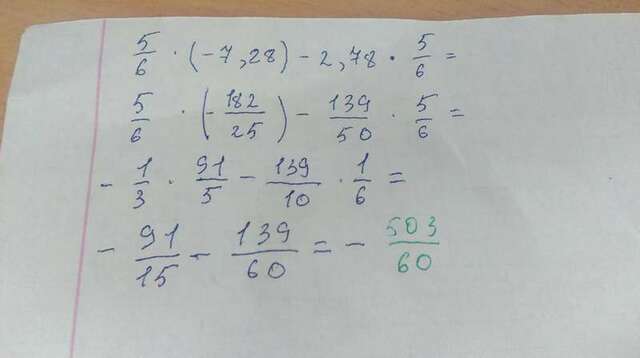 5/6 · (-7,28) - 2,78 · 5/6 =
5/6 · (-182/25) - 139/50 · 5/6 =
- 1/3 · 91/5 - 139/10 · 1/6 =
- 91/15 - 139/60 = - 503/60